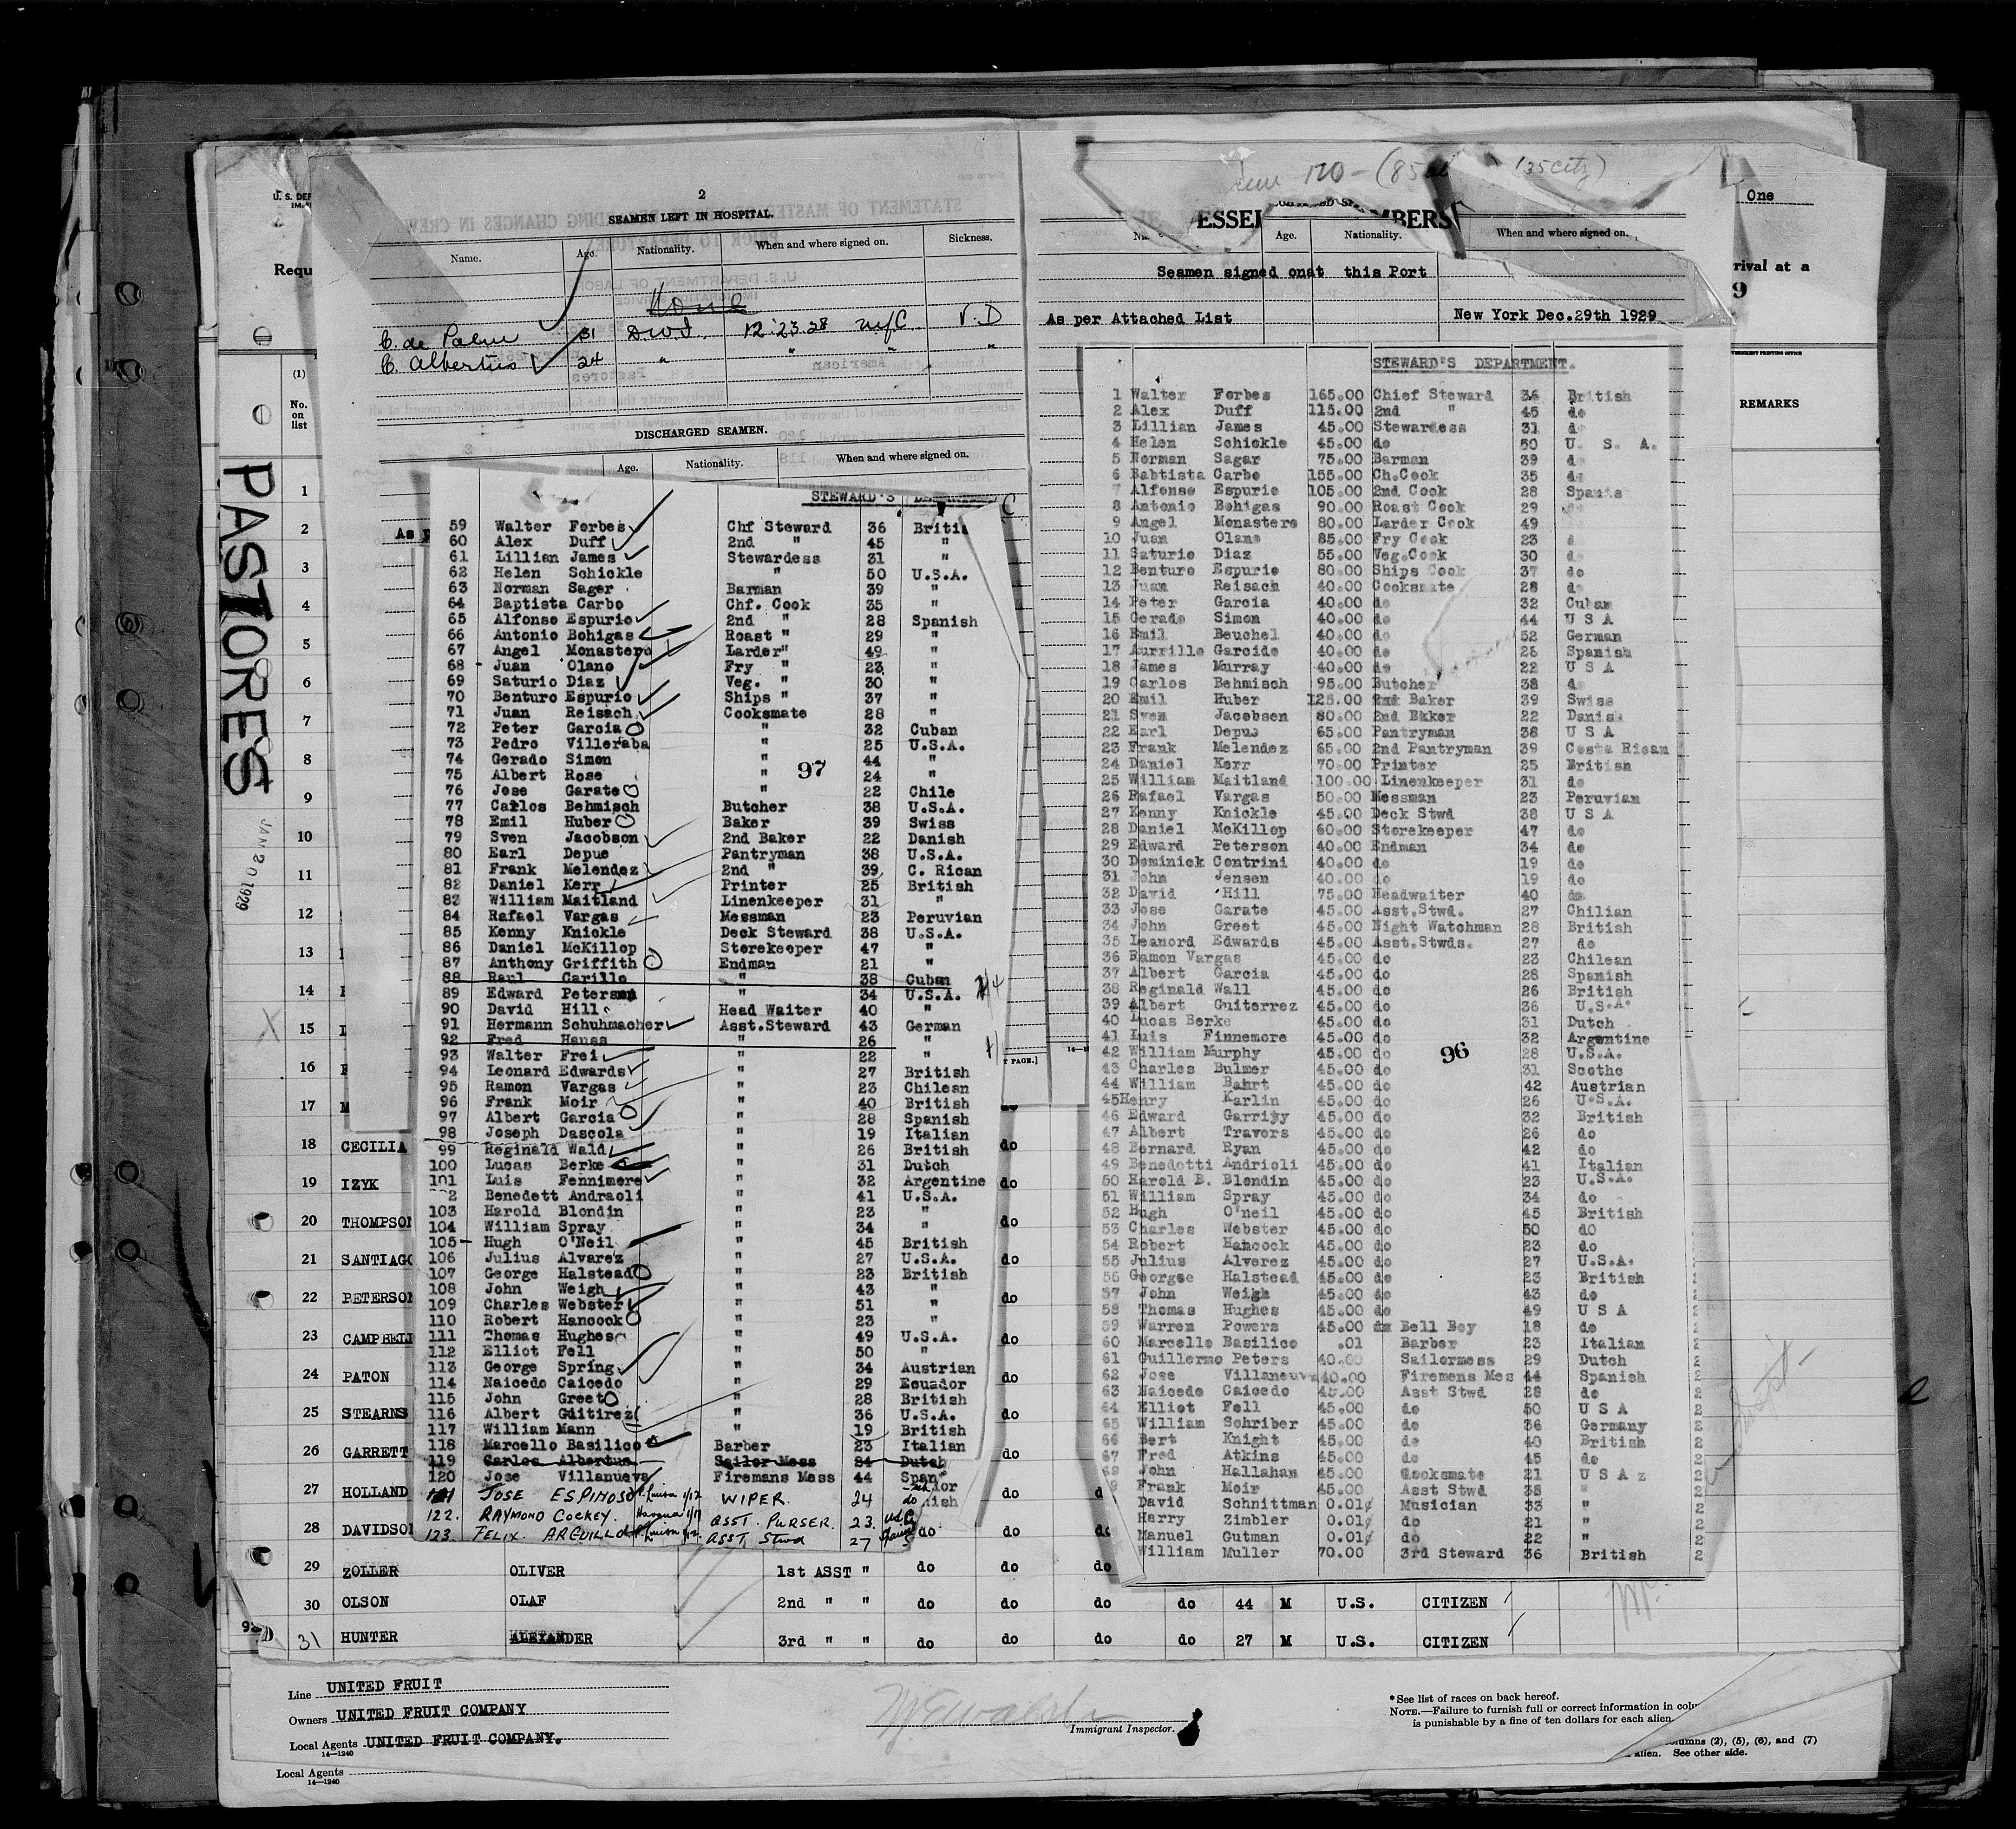 2
SEAMEN LEFT IN HOSPITAL.
Name. Age. Nationality. When and where signed on. Sickness.
None
C. de Palm 31 D.W.I. 12.23.28 NYC V.D
C. Albertus 24 " " " "
DISCHARGED SEAMEN.
Age. Nationality. When and where signed on.
STEWARD'S
59 Walter Forbes Chf Steward 36 Britis
60 Alex Duff 2nd " 45 "
61 Lillian James Stewardess 31 "
62 Helen Schickle " 50 U.S.A.
63 Norman Sager Barman 39 "
64 Baptista Carbo Chf. Cook 35 "
65 Alfonso Espurio 2nd " 28 Spanish
66 Antonio Bohigas Roast " 29 "
67 Angel Monastero Larder" 49 "
68 - Juan Olano Fry " 23 "
69 Saturio Diaz Veg. " 30 "
70 Benturo Espurio Ships " 37 "
71 Juan Reisach Cooksmate 28 "
72 Peter Garcia " 32 Cuban
73 Pedro Villeraba " 25 U.S.A.
74 Gerado Simon " 44 "
75 Albert Rose " 24 "
97
76 Jose Garate " 22 Chile
77 Carlos Behmisch Butcher 38 U.S.A.
78 Emil Huber Baker 39 Swiss
79 Sven Jacobson 2nd Baker 22 Danish
80 Earl Depue Pantryman 38 U.S.A.
81 Frank Melendez 2nd " 39 C. Rican
82 Daniel Kerr Printer 25 British
83 William Maitland Linenkeeper 31 "
84 Rafael Vargas Messman 23 Peruvian
85 Kenny Knickle Deck Steward 38 U.S.A.
86 Daniel McKillop Storekeeper 47 "
87 Anthony Griffith Endman 21 "
88 Raul Carillo " 38 Cuban
89 Edward Peterson " 34 U.S.A.
90 David Hill Head Waiter 40 "
91 Hermann Schuhmacher Asst.Steward 43 German
92 Fred Hauss " 26 "
93 Walter Frei " 22 "
94 Leonard Edwards " 27 British
95 Ramon Vargas " 23 Chilean
96 Frank Moir " 40 British
97 Albert Garcia " 28 Spanish
98 Joseph Dascola " 19 Italian
99 Reginald Wald " 26 British
100 Lucas Berke " 31 Dutch
101 Luis Fennimore " 32 Argentine
2 Benedett Andraoli " 41 U.S.A.
103 Harold Blondin " 23 "
104 William Spray " 34 "
105- Hugh O'Neil " 45 British
106 Julius Alvarez " 27 U.S.A.
107 George Halstead " 23 British
108 John Weigh " 43 "
109 Charles Webster " 51 "
110 Robert Hancock " 23 "
111 Thomas Hughes " 49 U.S.A.
112 Elliot Fell " 50 "
113 George Spring " 34 Austrian
114 Naicedo Caicedo " 29 Ecuador
115 John Greet " 28 British
116 Albert Gitirez " 36 U.S.A.
117 William Mann " 19 British
118 Marcello Basilico Barber 23 Italian
119 Carlos Albertus Sailor Mess 24 Dutch
120 Jose Villanueva Firemans Mess 44 Span
121 JOSE ESPINOSO WIPER. 24
122. RAYMOND COCKEY. Havana 1/17 ASST. PURSER. 23.
123. FELIX ARGUILLO ASST Stwd 27
170 - (85 135 Citz)
ESSEL MBERS
Age. Nationality. When and where signed on.
Seamen signed onat this Port
As per Attached List New York Dec.29th 1929
STEWARD'S DEPARTMENT.
1 Walter Forbes 165.00 Chief Steward 36 British
2 Alex Duff 115.00 2nd " 45 do
3 Lillian James 45.00 Stewardess 31 do
4 Helen Schickle 45.00 do 50 U. S. A.
5 Norman Sagar 75.00 Barman 39 do
6 Babtista Carbo 155.00 Ch.Cook 35 do
7 Alfonso Espurio 105.00 2nd Cook 28 Spanis
8 Antonio Bohigas 90.00 Roast Cook 29 do
9 Angel Monastero 80.00 Larder Cook 49
10 Juan Olano 85.00 Fry Cook 23 d
11 Saturio Diaz 55.00 Veg.Cook 30 do
12 Benturo Espurio 80.00 Ships Cook 37 do
13 Juan Reisach 40.00 Cooksmate 28 do
14 Peter Garcia 40.00 do 32 Cuban
15 Gerado Simon 40.00 do 44 U S A
16 Emil Beuchel 40.00 do 52 German
17 Aurrillo Garcido 40.00 do 28 Spanish
18 James Murray 40.00 do 22 U S A
19 Carlos Behmisch 95.00 Butcher 38 do
20 Emil Huber 125.00 Baker 39 Swiss
21 Sven Jacobsen 80.00 2nd Bkker 22 Danish
22 Earl Depue 65.00 Pantryman 38 U S A
23 Frank Melendez 65.00 2nd Pantryman 39 Costa Rican
24 Daniel Kerr 70.00 Printer 25 British
25 William Maitland 100.00 Linenkeeper 31 do
26 Rafael Vargas 50.00 Messman 23 Peruvian
27 Kenny Knickle 45.00 Deck Stwd 38 U S A
28 Daniel McKillop 60.00 Storekeeper 47 do
29 Edward Peterson 40.00 Endman 34 do
30 Dominick Contrini 40.00 do 19 do
31 John Jensen 40.00 do 19 do
32 David Hill 75.00 Headwaiter 40 do
33 Jose Garate 45.00 Asst.Stwd. 27 Chilian
34 John Greet 45.00 Night Watchman 28 British
35 Leanord Edwards 45.00 Asst.Stwds. 27 do
36 Ramon Vargas 45.00 do 23 Chilean
37 Albert Garcia 45.00 do 28 Spanish
38 Reginald Wall 45.00 do 26 British
39 Albert Guiterrez 45.00 do 36 U.S.A.
40 Lucas Berke 45.00 do 31 Dutch
41 Luis Finnemore 45.00 do 32 Argentine
42 William Murphy 45.00 do 28 U.S.A.
96
43 Charles Bulmer 45.00 do 31 Scothc
44 William Bahrt 45.00 do 42 Austrian
45Henry Karlin 45.00 do 26 U.S.A.
46 Edward Garrity 45.00 do 32 British
47 Albert Travers 45.00 do 26 do
48 Bernard Ryan 45.00 do 42 do
49 Benedetti Andrioli 45.00 do 41 Italian
50 Harold B. Blondin 45.00 do 23 U.S.A.
51 William Spray 45.00 do 34 do
52 Hugh O'neil 45.00 do 45 British
53 Charles Webster 45.00 do 50 dO
54 Robert Hancock 45.00 do 23 do
55 Julius Alverez 45.00 do 27 U.S.A.
56 Georgse Halstead 45.00 do 23 British
57 John Weigh 45.00 do 43 do
58 Thomas Hughes 45.00 do 49 U S A
59 Warren Powers 45.00 Bell Boy 18 do
60 Marcello Basilico .01 Barber 23 Italian
61 Guillermo Peters 40.00 Sailormess 29 Dutch
62 Jose Villaneuva 40.00 Firemens Mes 44 Spanish
63 Naicedo Caicedo 45.00 Asst Stwd 28 do
64 Elliot Fell 45.00 do 50 U S A
65 William Schriber 45.00 do 36 Germany
66 Bert Knight 45.00 do 40 British
67 Fred Atkins 45.00 do 45 do
68 John Hallahan 45.00 Cooksmate 21 U S A z
9 Frank Moir 45.00 Asst Stwd 38 "
David Schnittman 0.01¢ Musician 33 "
Harry Zimbler 0.01¢ do 21 "
Manuel Gutman 0.01¢ do 22 "
William Muller 70.00 3rd Steward 36 British
One
rival at a
9
REMARKS
U. S. DEP
Requ
(1)
No. on list
PASTORES
JAN 20 1929
1
2 As p
3
4
5
6
7
8
9
10
11
12
13
14
15
16
17 M
18 CECILIA do
19 IZYK do
20 THOMPSON do
21 SANTIAGO do
22 PETERSON do
23 CAMPBELL do
24 PATON do
25 STEARNS do
26 GARRETT do
27 HOLLAND do
28 DAVIDSON do do do
29 ZOLLER OLIVER 1st ASST " do do do
30 OLSON OLAF 2nd " " do do do do 44 M U.S. CITIZEN
31 HUNTER ALEXANDER 3rd " " do do do do 27 M U.S. CITIZEN
Line UNITED FRUIT
Owners UNITED FRUIT COMPANY
Local Agents UNITED FRUIT COMPANY.
14—1240
Local Agents
14—1240
Immigrant Inspector.
* See list of races on back hereof.
NOTE.—Failure to furnish full or correct information in colu
is punishable by a fine of ten dollars for each alien
olumns (2), (5), (6), and (7)
alien. See other side.